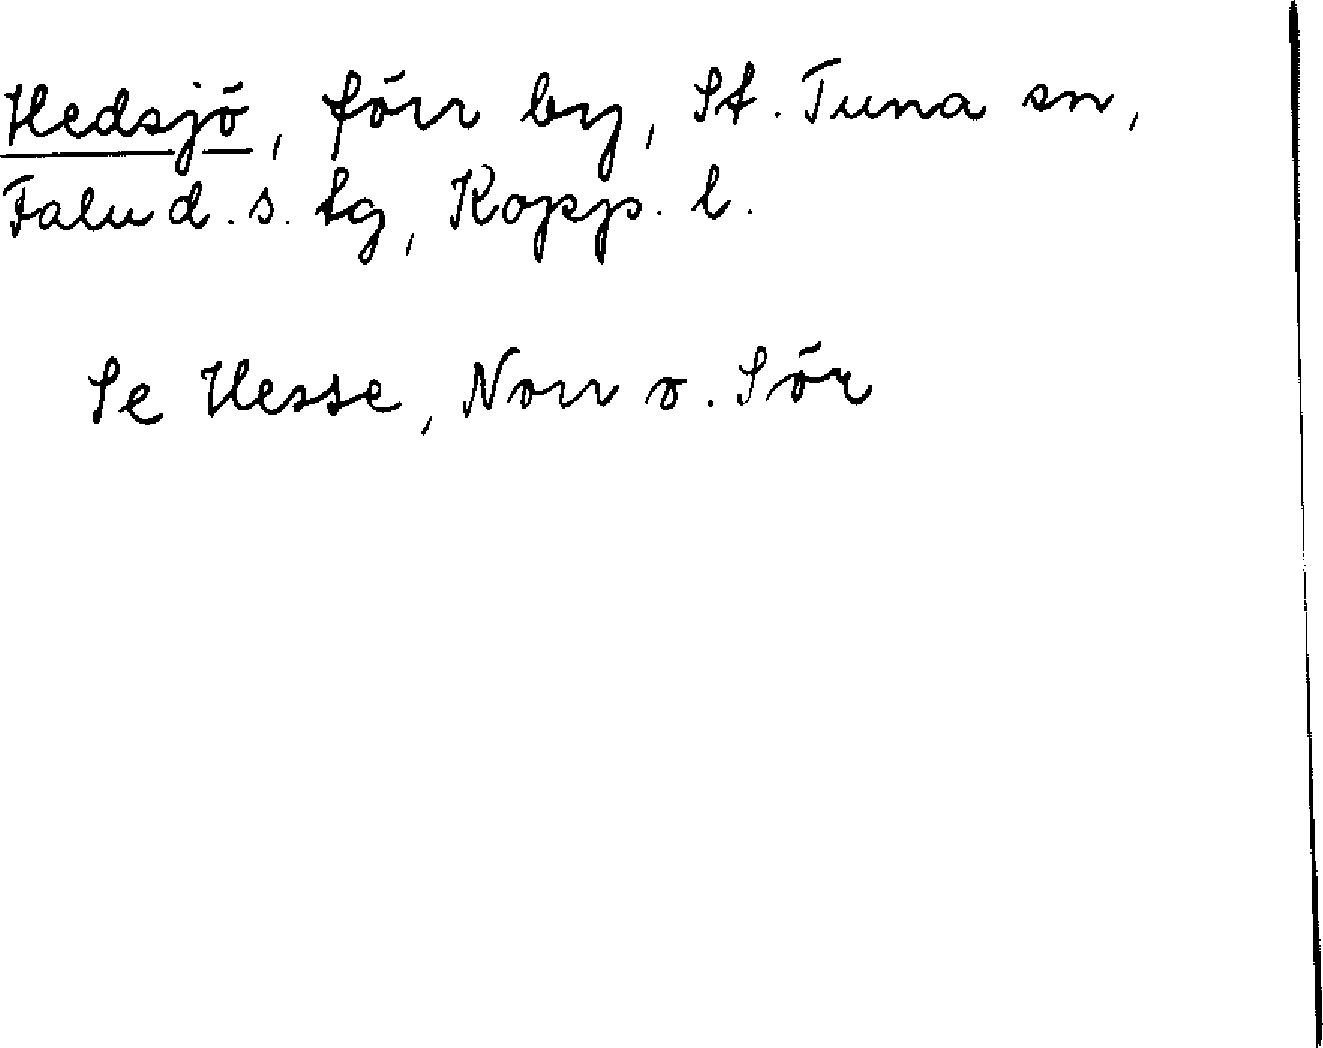 Hedsjö, förr by, St. Tuna sn,
Falu d. s. tg, Kopp. l.
Se Hesse, Norr o. Sör